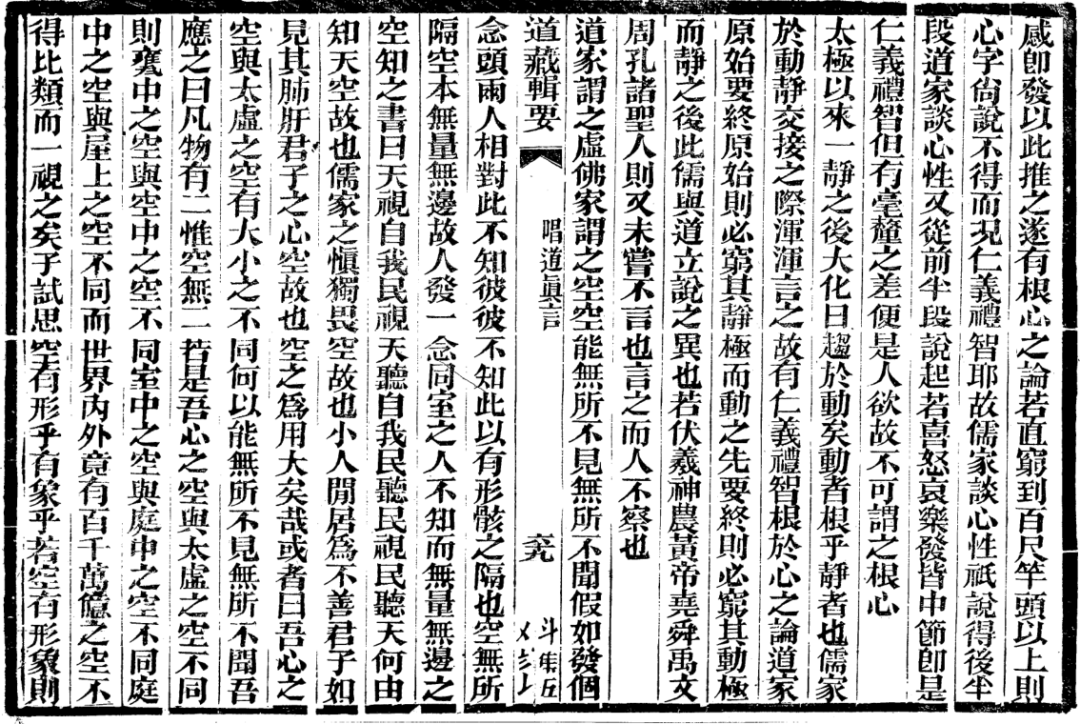 感卽發以此推之遂有根心之論若直窮到百尺竿頭以上則
心字尙說不得而況仁義禮智耶故儒家談心性祇說得後半
段道家談心性又從前半段說起若喜怒哀樂發皆中節卽是
仁義禮智但有毫釐之差便是人欲故不可謂之根心
太極以來一靜之後大化日趨於動矣動者根乎靜者也儒家
於動靜交接之際渾渾言之故有仁義禮智根於心之論道家
原始要終原始則必窮其靜極而動之先要終則必窮其動極
而靜之後此儒與道立說之異也若伏羲神農黃帝堯舜禹文
周孔諸聖人則又未嘗不言也言之而人不察也
道家謂之虛佛家謂之空空能無所不見無所不聞假如發個
道藏輯要 唱道眞言 斗集五
念頭兩人相對此不知彼彼不知此以有形骸之隔也空無所
隔空本無量無邊故人發一念同室之人不知而無量無邊之
空知之書曰天視自我民視天聽自我民聽民視民聽天何由
知天空故也儒家之愼獨畏空故也小人閒居爲不善君子如
見其肺肝君子之心空故也空之爲用大矣哉或者曰吾心之
空與太虛之空有大小之不同何以能無所不見無所不聞吾
應之曰凡物有二惟空無二若是吾心之空與太虛之空不同
則甕中之空與空中之空不同室中之空與庭中之空不同庭
中之空與屋上之空不同而世界內外竟有百千萬億之空不
得比類而一視之矣子試思空有形乎有象乎若空有形象則